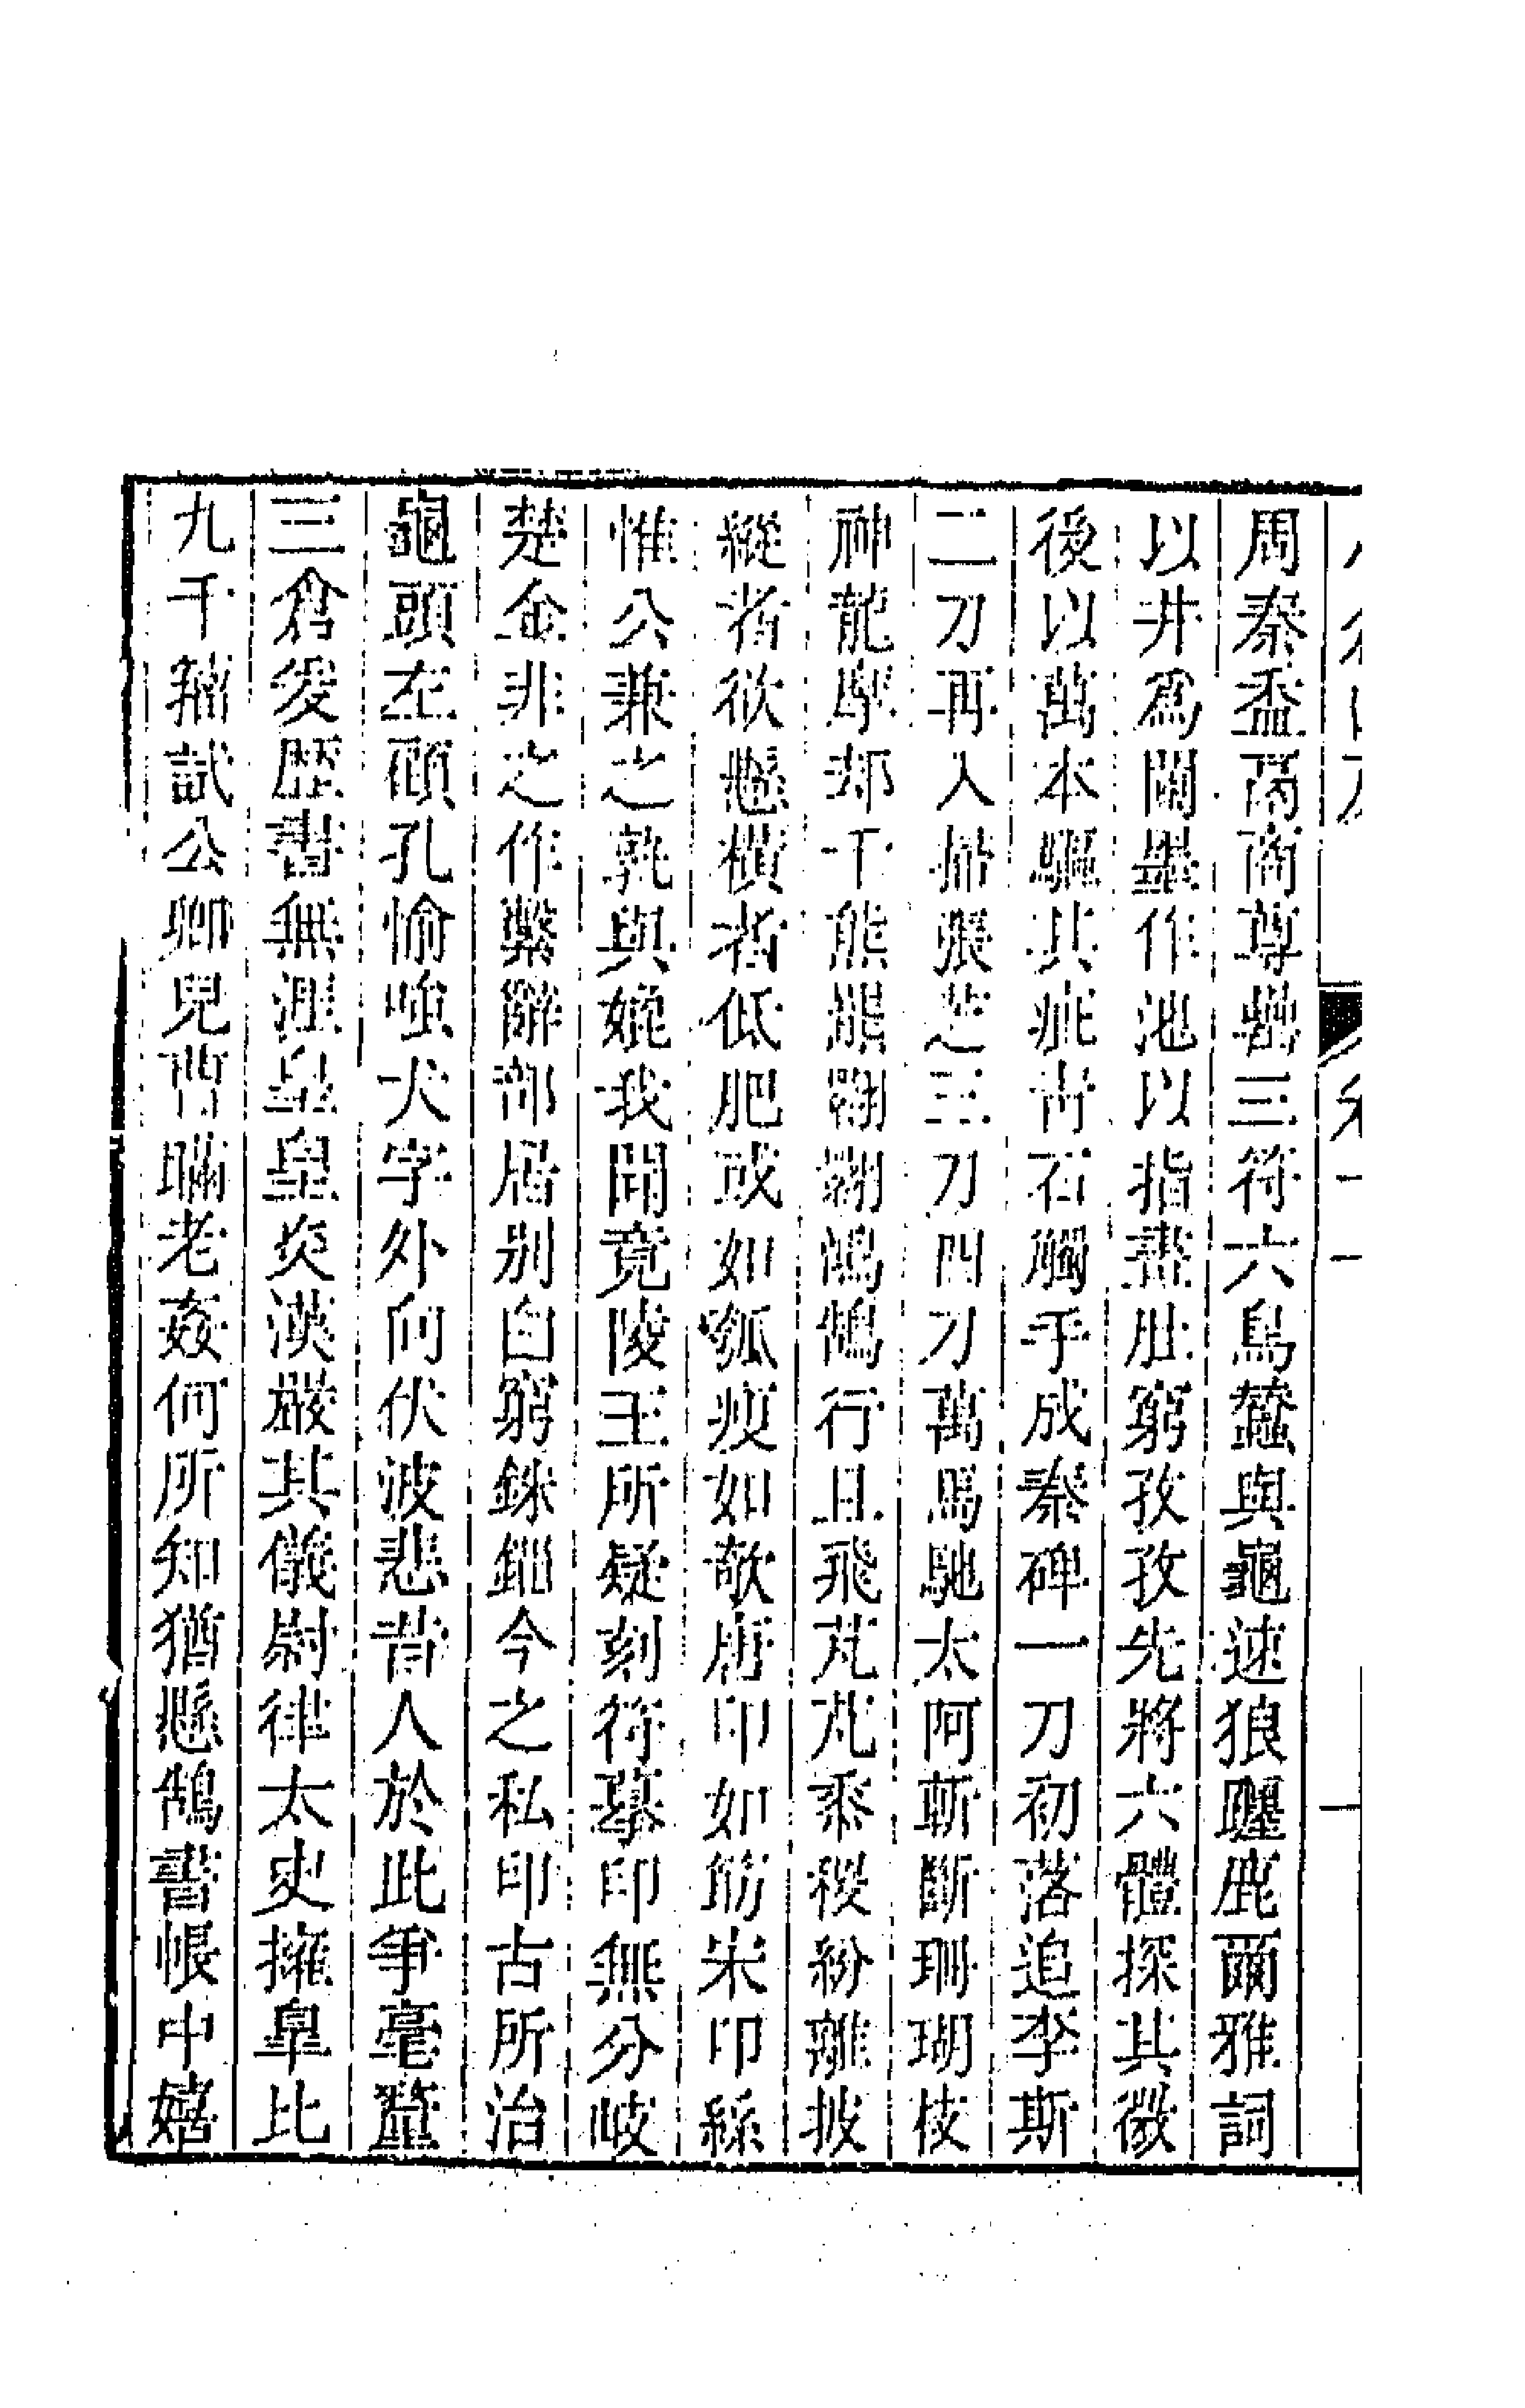 周秦盃鬲商尊罍三符六鳥蠶與龜速狼躔鹿爾雅詞
以井為關壘作池以指畫肚窮孜孜先將六體探其微
後以萬本驅其疵青石觸手成秦碑一刀初落追李斯
二刀再入掃張芝三刀四刀萬馬馳太阿斬斷珊瑚枝
神龍舉却千熊羆翱翔鴻鵠行且飛芃芃黍稷紛離披
縱者欲懸橫者低肥或如瓠瘦如欹唐印如筋宋印絲
惟公兼之孰與媲我聞竟陵王所疑刻符摹印無分岐
楚金非之作繫辭部居別白窮銖錙今之私印古所治
龜頭左顧孔愉嗤犬字外向伏波悲昔人於此爭毫釐
三倉爰歷書無涯皇皇炎漢嚴其儀尉律太史擁皐比
九千籀試公卿兒 瞞老姦何所知猶懸鵠書帳中嬉